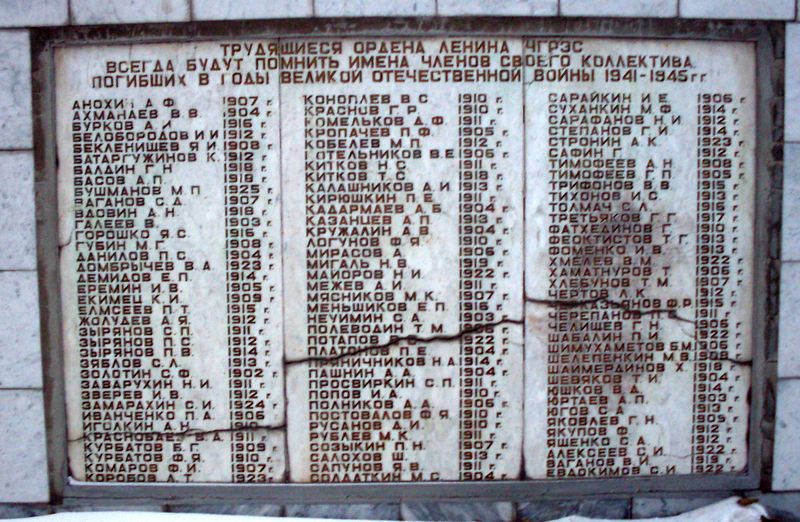 ТРУДЯЩИЕСЯ ОРДЕНА ЛЕНИНА ЧГРЭС
ВСЕГДА БУДУТ ПОМНИТЬ ИМЕНА ЧЛЕНОВ СВОЕГО КОЛЛЕКТИВА,
ПОГИБШИХ В ГОДЫ ВЕЛИКОЙ ОТЕЧЕСТВЕННОЙ ВОЙНЫ 1941-1945 гг
АНОХИН А.Ф. 1907 г.
АХМАНАЕВ В.В. 1904 г.
БУРКОВ А.И. 1916 г.
БЕЛОБОРОДОВ И.И. 1912 г.
БЕКЛЕНИЩЕВ Я.И. 1908 г.
БАТАРГУЖИНОВ К. 1912 г.
БАЛДИН Г.Н. 1918 г.
БАСОВ А.П. 1918 г.
БУШМАНОВ М.П. 1925 г.
ВАГАНОВ С.Д. 1907 г.
ВДОВИН А.Н. 1918 г.
ГАЛЕЕВ В. 1903 г.
ГОРОШКО Я.С. 1916 г.
ГУБИН М.Г. 1908 г.
ДАНИЛОВ П.С. 1904 г.
ДОМБРЫЧЕВ В.А. 1923 г.
ДЕМИДОВ Е.П. 1914 г.
ЕРЕМИН И.В. 1905 г.
ЕКИМЕЦ К.И. 1909 г.
ЕЛМСЕЕВ П.Т. 1915 г.
ЖОЛУДЕВ А.Я. 1912 г.
ЗЫРЯНОВ С.П. 1911 г.
ЗЫРЯНОВ П.С. 1912 г.
ЗЫРЯНОВ П.В. 1914 г.
ЗЯБЛОВ С.Л. 1913 г.
ЗОЛОТИН С.Ф. 1902 г.
ЗАВАРУХИН Н.И. 1911 г.
ЗВЕРЕВ И.В. 1912 г.
ЗАМАРАХИН С.И. 1924 г.
ИВАНЧЕНКО П.А. 1906 г.
ИГОЛКИН А.Н. 1910 г.
КРАСНОБАЕВ В.А. 1911 г.
КУРБАТОВ Б.Г. 1909 г.
КУРБАТОВ Ф.Я. 1910 г.
КОМАРОВ Ф.И. 1907 г.
КОРОБОВ Л.Т. 1923 г.
КОНОПЛЕВ В.С. 1910 г.
КРАСНОВ Г.Р. 1910 г.
КОМЕЛЬКОВ Д.Ф. 1911 г.
КРОПАЧЕВ П.Ф. 1905 г.
КОБЕЛЕВ М.П. 1912 г.
КОТЕЛЬНИКОВ В.Е. 1906 г.
КИТКОВ Н.С. 1911 г.
КИТКОВ Т.С. 1918 г.
КАЛАШНИКОВ Д.И. 1913 г.
КИРЮШКИН П.Е. 1911 г.
КАДАРМАЕВ А.Б. 1904 г.
КАЗАНЦЕВ А.П. 1913 г.
КРУЖАЛИН А.В. 1904 г.
ЛОГУНОВ Ф.Я. 1910 г.
МИРАСОВ А. 1906 г.
МИГАЛЬ Н.В. 1919 г.
МАЙОРОВ Н.И. 1922 г.
МЕЖЕВ А.И. 1911 г.
МЯСНИКОВ М.К. 1907 г.
МЕНЬШИКОВ Е.П. 1915 г.
НЕУИМИН С.А. 1903 г.
ПОЛЕВОДИН Т.М. 1908 г.
ПОТАПОВ 1922 г.
ПЛАТОНОВ П.Е. 1904 г.
ПРЯНИЧНИКОВ Н.А. 1914 г.
ПАШНИН А.А. 1904 г.
ПРОСВИРКИН С.П. 1911 г.
ПОПОВ И.А. 1910 г.
ПОЛНИКОВ А.А. 1906 г.
ПОСТОВАЛОВ Ф.Я. 1910 г.
РУСАНОВ Д.И. 1910 г.
РУБЛЕВ М.К. 1911 г.
СОЗЫКИН П.Н. 1907 г.
САЛОХОВ Ш. 1913 г.
САПУНОВ Я.В. 1911 г.
СОЛДАТКИН М.С. 1904 г.
САРАЙКИН И.Е. 1906 г.
СУХАНКИН М.Ф. 1914 г.
САРАФАНОВ Н.И. 1912 г.
СТЕПАНОВ Г.И. 1914 г.
СТРОНИН А.К. 1923 г.
САФИН Г. 1912 г.
ТИМОФЕЕВ А.Н. 1908 г.
ТИМОФЕЕВ Г.П. 1905 г.
ТРИФОНОВ В.В. 1915 г.
ТИХОНОВ И.С. 1913 г.
ТОЛМАЧ С.А. 1918 г.
ТРЕТЬЯКОВ Г.Г. 1917 г.
ФАТХЕДИНОВ Г. 1910 г.
ФЕОКТИСТОВ Т.Г. 1913 г.
ФОМЕНКО И.В. 1913 г.
ХМЕЛЕВ В.М. 1922 г.
ХАМАТНУРОВ Т. 1906 г.
ХЛЕБУНОВ Т.М. 1907 г.
ЧЕРТОВ Л.К. 1912 г.
Ф.Р. 1915 г.
ЧЕРЕПАНОВ 1911 г.
ЧЕЛИЩЕВ Г.Н. 1906 г.
ШАБАЛИН П.И. 1922 г.
ШИМУХАМЕТОВ Б.М. 1906 г.
ШЕЛЕПЕНКИН М.В. 1908 г.
ШАЙМЕРДИНОВ Х. 1918 г.
ШЕВЯКОВ Т.И. 1904 г.
ЮШКОВ В.А. 1914 г.
ЮРТАЕВ А.П. 1903 г.
ЮГОВ С.А. 1913 г.
ЯКОВЛЕВ Г.Н. 1905 г.
ЯКУПОВ Ф. 1912 г.
ЯЩЕНКО С.А. 1913 г.
АЛЕКСЕЕВ С.И. 1922 г.
ВАГАНОВ В.И. 1919 г.
ЕВДОКИМОВ С.И. 1922 г.